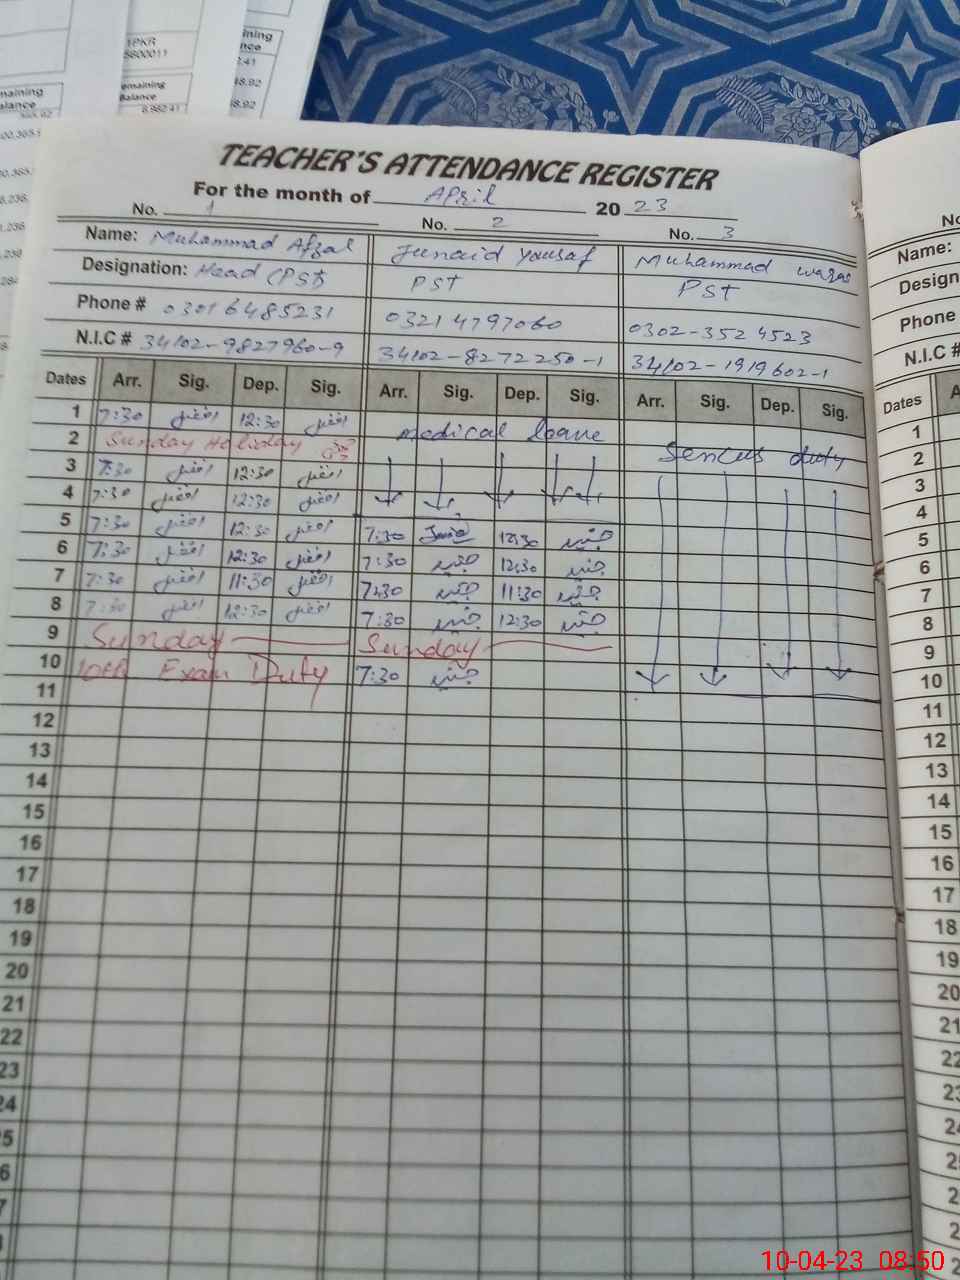 1PKR
5800011
ining
nce
2.41
emaining
Balance
8,662.41
48.92
8.92
maining
alance
TEACHER'S ATTENDANCE REGISTER
For the month of April 20 23
No. 1 No. 2 No. 3
Name: Muhammad Afzal Junaid Yousaf Muhammad waqas
Designation: Head (PST) PST PST
Phone # 0301 6485231 0321 4797060 0302-352 4523
N.I.C # 34102-9827960-9 34102-8272250-1 34102-1919602-1
Dates Arr. Sig. Dep. Sig. Arr. Sig. Dep. Sig. Arr. Sig. Dep. Sig.
1 7:30 افضل 12:30 افضل medical leave
2 Sunday Holiday Sencus duty
3 7:30 افضل 12:30 افضل
4 7:30 افضل 12:30 افضل
5 7:30 افضل 12:30 افضل 7:30 Junaid 12:30 جنید
6 7:30 افضل 12:30 افضل 7:30 جنید 12:30 جنید
7 7:30 افضل 11:30 افضل 7:30 جنید 11:30 جنید
8 7:30 افضل 12:30 افضل 7:30 جنید 12:30 جنید
9 Sunday Sunday
10 10th Exam Duty 7:30 جنید
11
12
13
14
15
16
17
18
19
20
21
22
23
24
5
6
No
Name:
Design
Phone
N.I.C #
Dates A
1
2
3
4
5
6
7
8
9
10
11
12
13
14
15
16
17
18
19
20
21
22
23
24
25
10-04-23 08:50